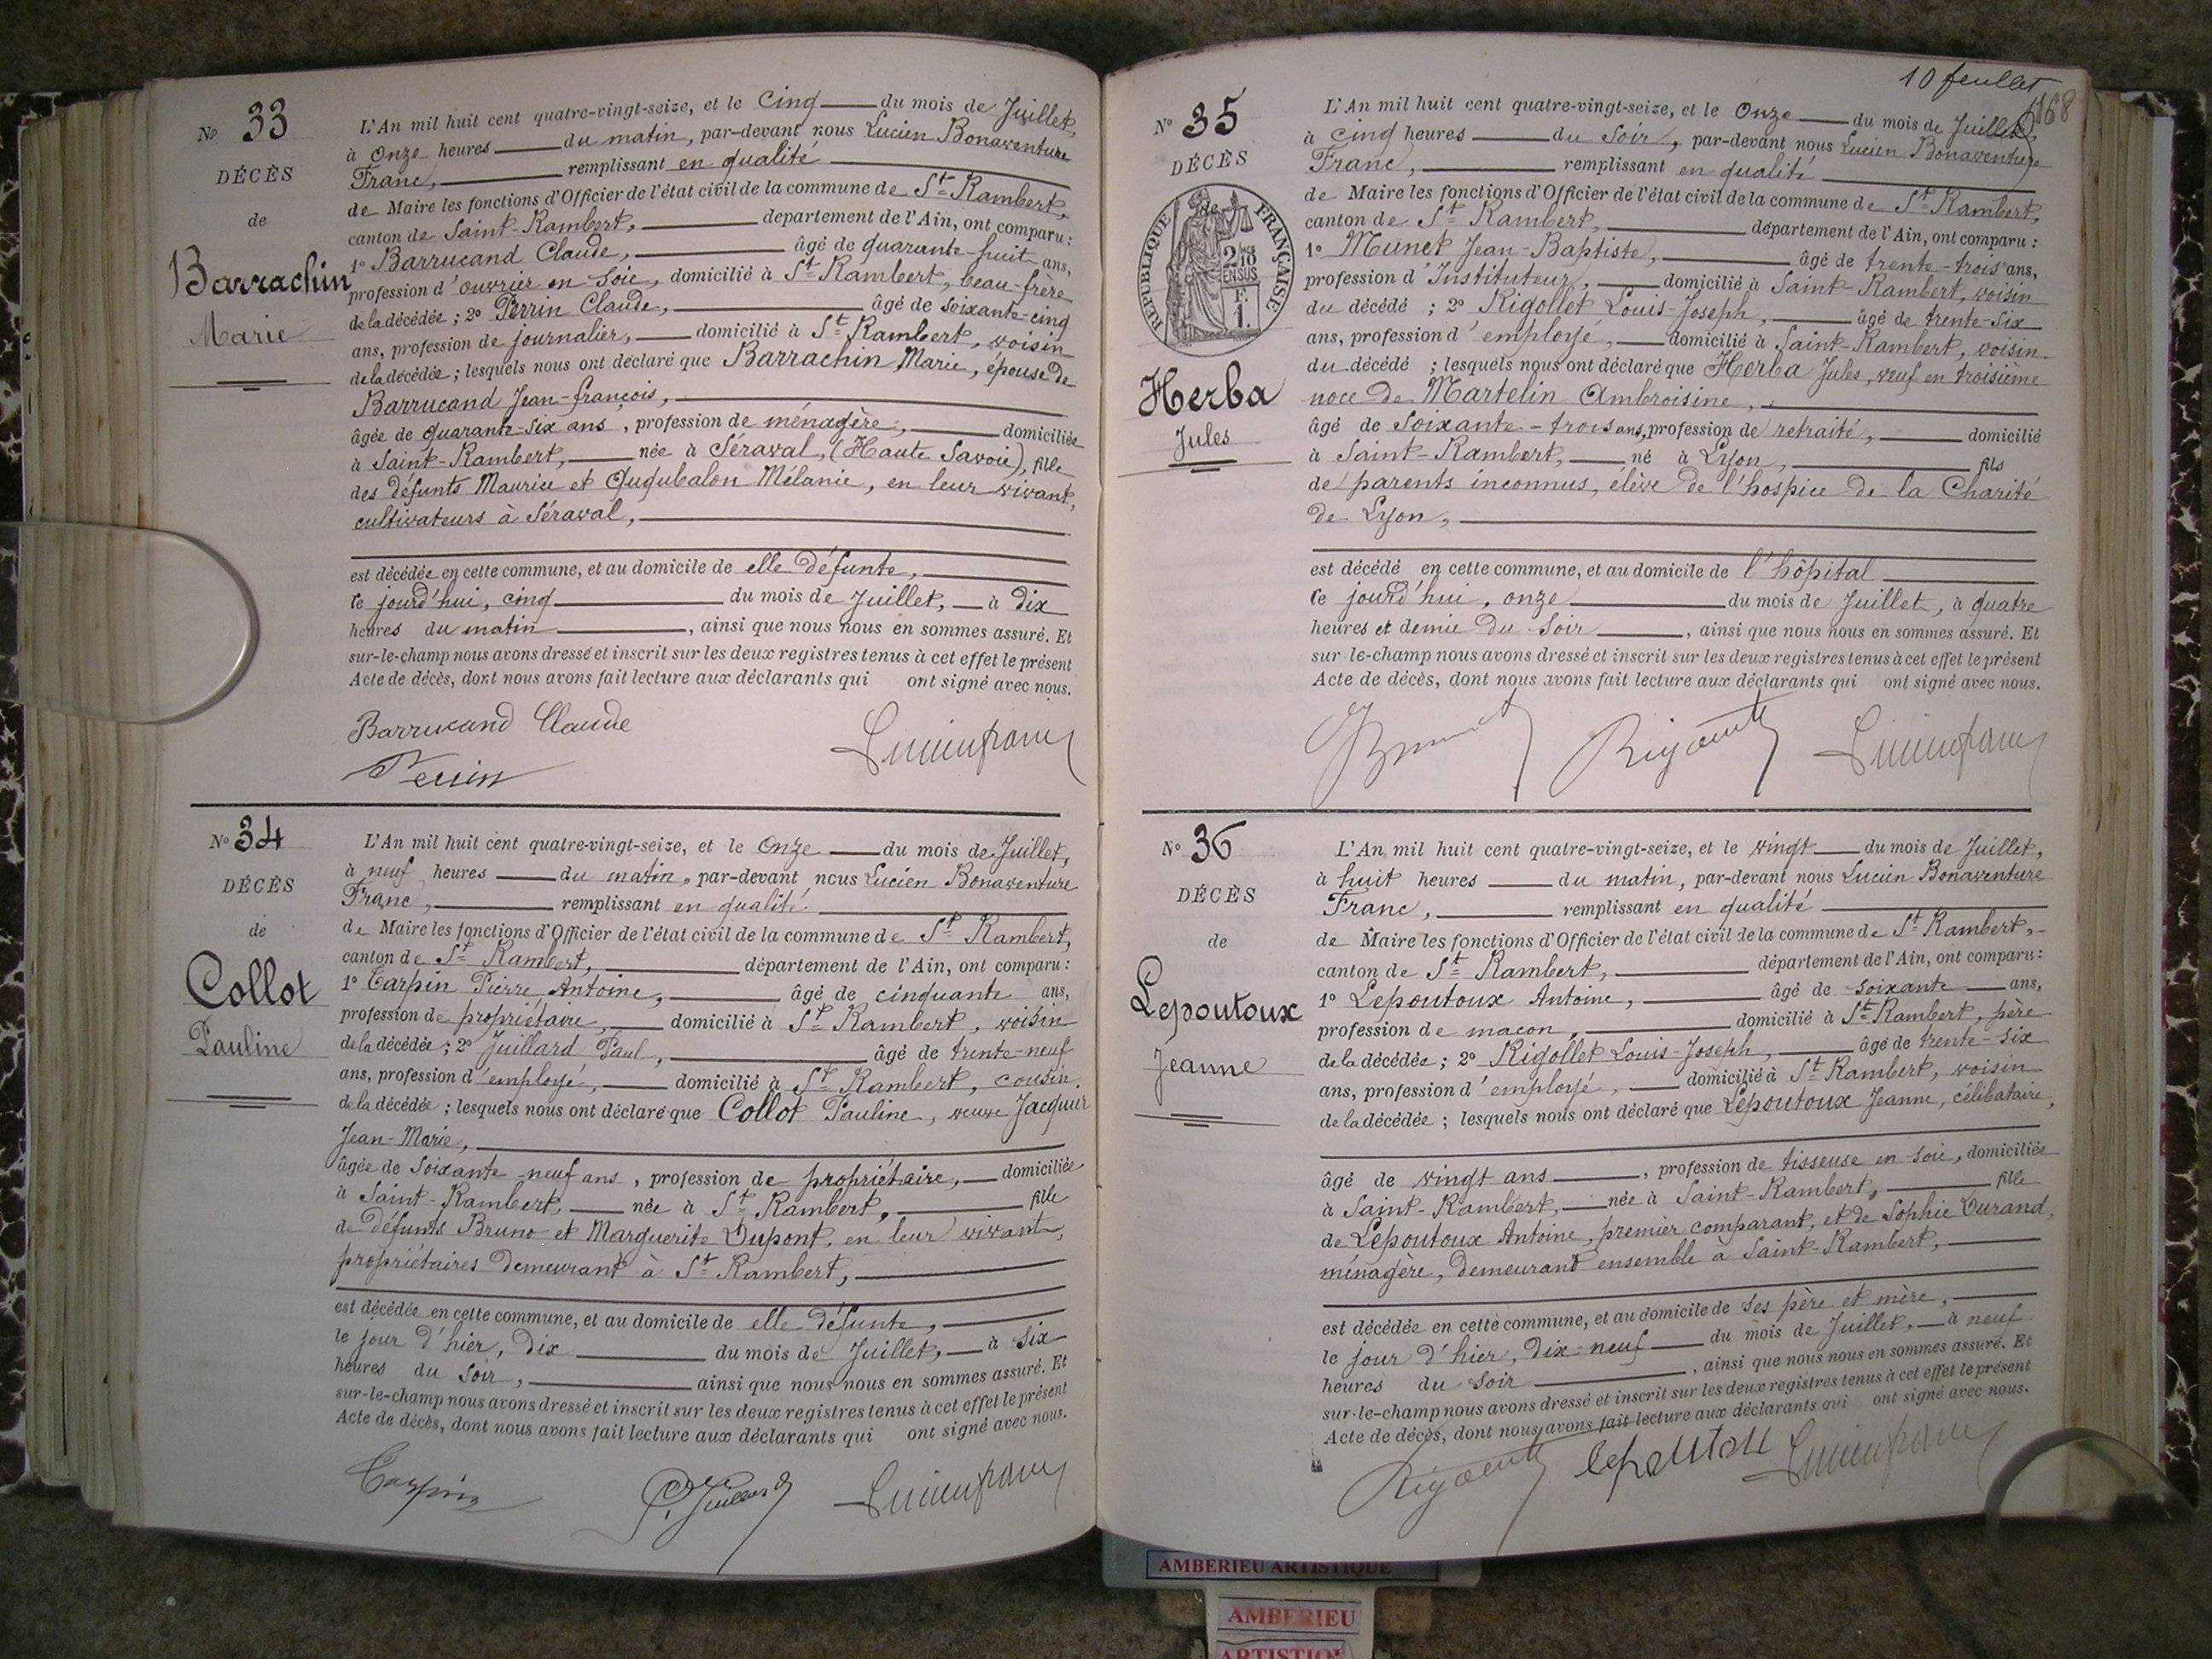 No 33
DÉCÈS
de
Barrachin
Marie
L'An mil huit cent quatre-vingt-seize, et le Cinq du mois de Juillet,
à Onze heures du matin, par-devant nous Lucien Bonaventure
Franc, remplissant en qualité
de Maire les fonctions d'Officier de l'état civil de la commune de St Rambert,
canton de Saint-Rambert, département de l'Ain, ont comparu :
1o Barrucand Claude, âgé de quarante-huit ans,
profession d'ouvrier en soie, domicilié à St Rambert, beau-frère
de la décédée ; 2o Perrin Claude, âgé de soixante-cinq
ans, profession de journalier, domicilié à St Rambert, voisin
de la décédée ; lesquels nous ont déclaré que Barrachin Marie, épouse de
Barrucand Jean-françois,
âgée de quarante-six ans, profession de ménagère, domiciliée
à Saint-Rambert, née à Séraval, (Haute Savoie), fille
des défunts Maurice et Mélanie, en leur vivant,
cultivateurs à Séraval,
est décédée en cette commune, et au domicile de elle défunte,
ce jourd'hui, cinq du mois de Juillet, à dix
heures du matin, ainsi que nous nous en sommes assuré. Et
sur-le-champ nous avons dressé et inscrit sur les deux registres tenus à cet effet le présent
Acte de décès, dont nous avons fait lecture aux déclarants qui ont signé avec nous.
Barrucand Claude
Perrin
Lucien franc
No 34
DÉCÈS
de
Collot
Pauline
L'An mil huit cent quatre-vingt-seize, et le Onze du mois de Juillet,
à neuf heures du matin, par-devant nous Lucien Bonaventure
Franc, remplissant en qualité
de Maire les fonctions d'Officier de l'état civil de la commune de St Rambert,
canton de St Rambert, département de l'Ain, ont comparu :
1o Carpin Pierre Antoine, âgé de cinquante ans,
profession de propriétaire, domicilié à St Rambert, voisin
de la décédée ; 2o Juillard Paul, âgé de trente-neuf
ans, profession d'employé, domicilié à St Rambert, cousin
de la décédée ; lesquels nous ont déclaré que Collot Pauline, veuve Jacquier
Jean-Marie,
âgée de soixante-neuf ans, profession de propriétaire, domiciliée
à Saint-Rambert, née à St Rambert, fille
de défunts Bruno et Marguerite Dupont, en leur vivant,
propriétaires demeurant à St Rambert,
est décédée en cette commune, et au domicile de elle défunte,
le jour d'hier, dix du mois de Juillet, à six
heures du soir, ainsi que nous nous en sommes assuré. Et
sur-le-champ nous avons dressé et inscrit sur les deux registres tenus à cet effet le présent
Acte de décès, dont nous avons fait lecture aux déclarants qui ont signé avec nous.
Carpin
P. Juillard
Lucien franc
10 feuillet
168
No 35
DÉCÈS
de
RÉPUBLIQUE FRANÇAISE
2/10 EN SUS
F. 1.
Herba
Jules
L'An mil huit cent quatre-vingt-seize, et le Onze du mois de Juillet,
à cinq heures du soir, par-devant nous Lucien Bonaventure
Franc, remplissant en qualité
de Maire les fonctions d'Officier de l'état civil de la commune de St Rambert,
canton de St Rambert, département de l'Ain, ont comparu :
1o Munet Jean-Baptiste, âgé de trente-trois ans,
profession d'Instituteur, domicilié à Saint-Rambert, voisin
du décédé ; 2o Rigollet Louis-Joseph, âgé de trente-six
ans, profession d'employé, domicilié à Saint-Rambert, voisin
du décédé ; lesquels nous ont déclaré que Herba Jules, veuf en troisième
noce de Martelin Ambroisine,
âgé de soixante-trois ans, profession de retraité, domicilié
à Saint-Rambert, né à Lyon, fils
de parents inconnus, élève de l'hospice de la Charité
de Lyon,
est décédé en cette commune, et au domicile de l'hôpital
ce jourd'hui, onze du mois de Juillet, à quatre
heures et demie du soir, ainsi que nous nous en sommes assuré. Et
sur-le-champ nous avons dressé et inscrit sur les deux registres tenus à cet effet le présent
Acte de décès, dont nous avons fait lecture aux déclarants qui ont signé avec nous.
Rigollet
Lucien franc
No 36
DÉCÈS
de
Lepoutoux
Jeanne
L'An mil huit cent quatre-vingt-seize, et le vingt du mois de Juillet,
à huit heures du matin, par-devant nous Lucien Bonaventure
Franc, remplissant en qualité
de Maire les fonctions d'Officier de l'état civil de la commune de St Rambert,
canton de St Rambert, département de l'Ain, ont comparu :
1o Lepoutoux Antoine, âgé de soixante ans,
profession de maçon, domicilié à St Rambert, père
de la décédée ; 2o Rigollet Louis-Joseph, âgé de trente-six
ans, profession d'employé, domicilié à St Rambert, voisin
de la décédée ; lesquels nous ont déclaré que Lepoutoux Jeanne, célibataire,
âgé de vingt ans, profession de tisseuse en soie, domiciliée
à Saint-Rambert, née à Saint-Rambert, fille
de Lepoutoux Antoine, premier comparant, et de Sophie Durand,
ménagère, demeurant ensemble à Saint-Rambert,
est décédée en cette commune, et au domicile de ses père et mère,
le jour d'hier, dix-neuf du mois de Juillet, à neuf
heures du soir, ainsi que nous nous en sommes assuré. Et
sur-le-champ nous avons dressé et inscrit sur les deux registres tenus à cet effet le présent
Acte de décès, dont nous avons fait lecture aux déclarants qui ont signé avec nous.
Rigollet
Lepoutou
Lucien franc
AMBERIEU ARTISTIQUE
AMBERIEU
ARTISTIQU